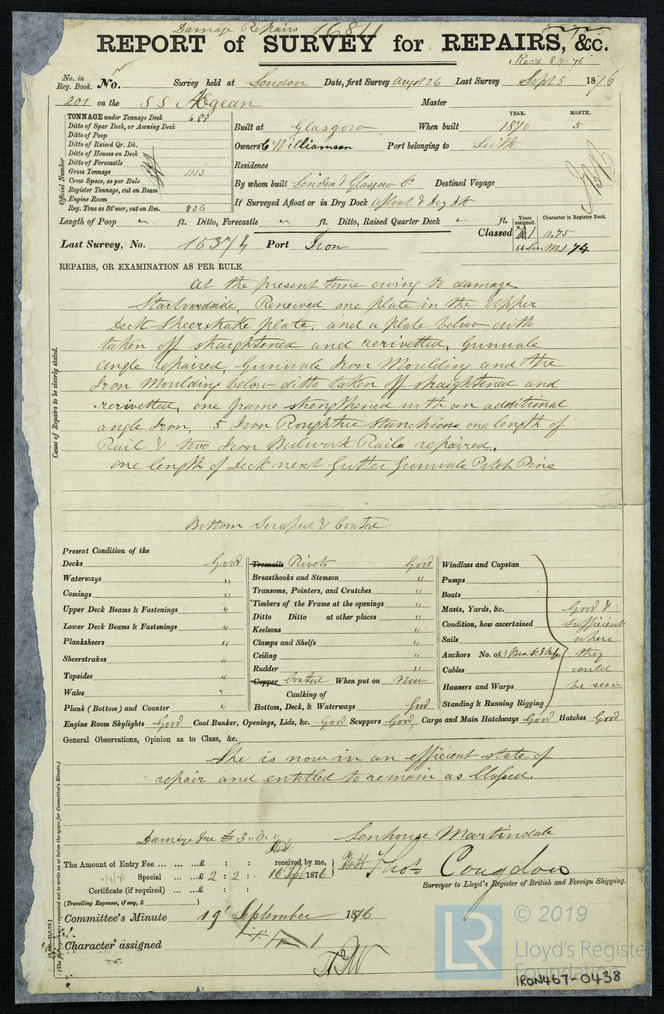 Damage Repairs 16811
REPORT of SURVEY for REPAIRS, &c.
Rec'd 8-9-76
No. in Reg. Book. No. Survey held at London Date, first Survey Augt 26 Last Survey Sept 5 1876
201 on the SS Ægean Master
TONNAGE under Tonnage Deck 688
Ditto of Spar Deck, or Awning Deck
Ditto of Poop
Ditto of Raised Qr. Dk.
Ditto of Houses on Deck
Ditto of Forecastle
Gross Tonnage 1113
Crew Space, as per Rule
Register Tonnage, cut on Beam
Engine Room
Reg. Tons as St'mer, cut on Bm. 836
Official Number
YEAR. MONTH.
Built at Glasgow When built 1870 5
Owners C Williamson Port belonging to Leith
Residence
By whom built London & Glasgow Co. Destined Voyage
If Surveyed Afloat or in Dry Dock Afloat & Dry Dk
Length of Poop " ft. Ditto, Forecastle " ft. Ditto, Raised Quarter Deck " ft.
Years assigned. Character in Register Book.
Classed A1 11.75
Last Survey, No. 15374 Port Iron
74
REPAIRS, OR EXAMINATION AS PER RULE
Cause of Repairs to be clearly stated.
At the present time owing to damage
Starboardside, Renewed one plate in the Upper
Deck Sheerstrake plate, and a plate below ditto
taken off straightened and rerivetted, Gunwale
angle repaired, Gunwale Iron Moulding and the
Iron Moulding below ditto taken off straightened and
rerivetted, one frame strengthened with an additional
angle Iron, 5 Iron Roughtree Stanchions one length of
Rail & two Iron Bulwark Rails repaired.
one length of Deck next Gutter Gunwale Pitch Pine
Bottom Scraped & Coated
Present Condition of the
Decks Good
Waterways "
Comings "
Upper Deck Beams & Fastenings "
Lower Deck Beams & Fastenings "
Planksheers "
Sheerstrakes "
Topsides "
Wales "
Plank (Bottom) and Counter "
Treenails Rivets Good
Breasthooks and Stemson "
Transoms, Pointers, and Crutches "
Timbers of the Frame at the openings "
Ditto Ditto at other places "
Keelsons "
Clamps and Shelfs "
Ceiling "
Rudder "
Copper Coated When put on Now
Caulking of
Bottom, Deck, & Waterways Good
Windlass and Capstan
Pumps
Boats
Masts, Yards, &c.
Condition, how ascertained
Sails
Anchors No. of
Cables
Hawsers and Warps
Standing & Running Rigging
Good &
sufficient
where
they
could
be seen
Engine Room Skylights Good Coal Bunker, Openings, Lids, &c. Good Scuppers Good Cargo and Main Hatchways Good Hatches Good
General Observations, Opinion as to Class, &c.
She is now in an efficient state of
repair and entitled to remain as Classed.
Damage fee £3.0.0
Senhouse Martindale
The Amount of Entry Fee ... £ : : received by me,
Special ... £ 2 : 2 : 1876
Thos Congdon
Certificate (if required) ... £ : :
Surveyor to Lloyd's Register of British and Foreign Shipping.
(Travelling Expenses, if any, £ )
Committee's Minute 19 September 1876
Character assigned
© 2019
LR Lloyd's Register
Foundation
IRON467-0438